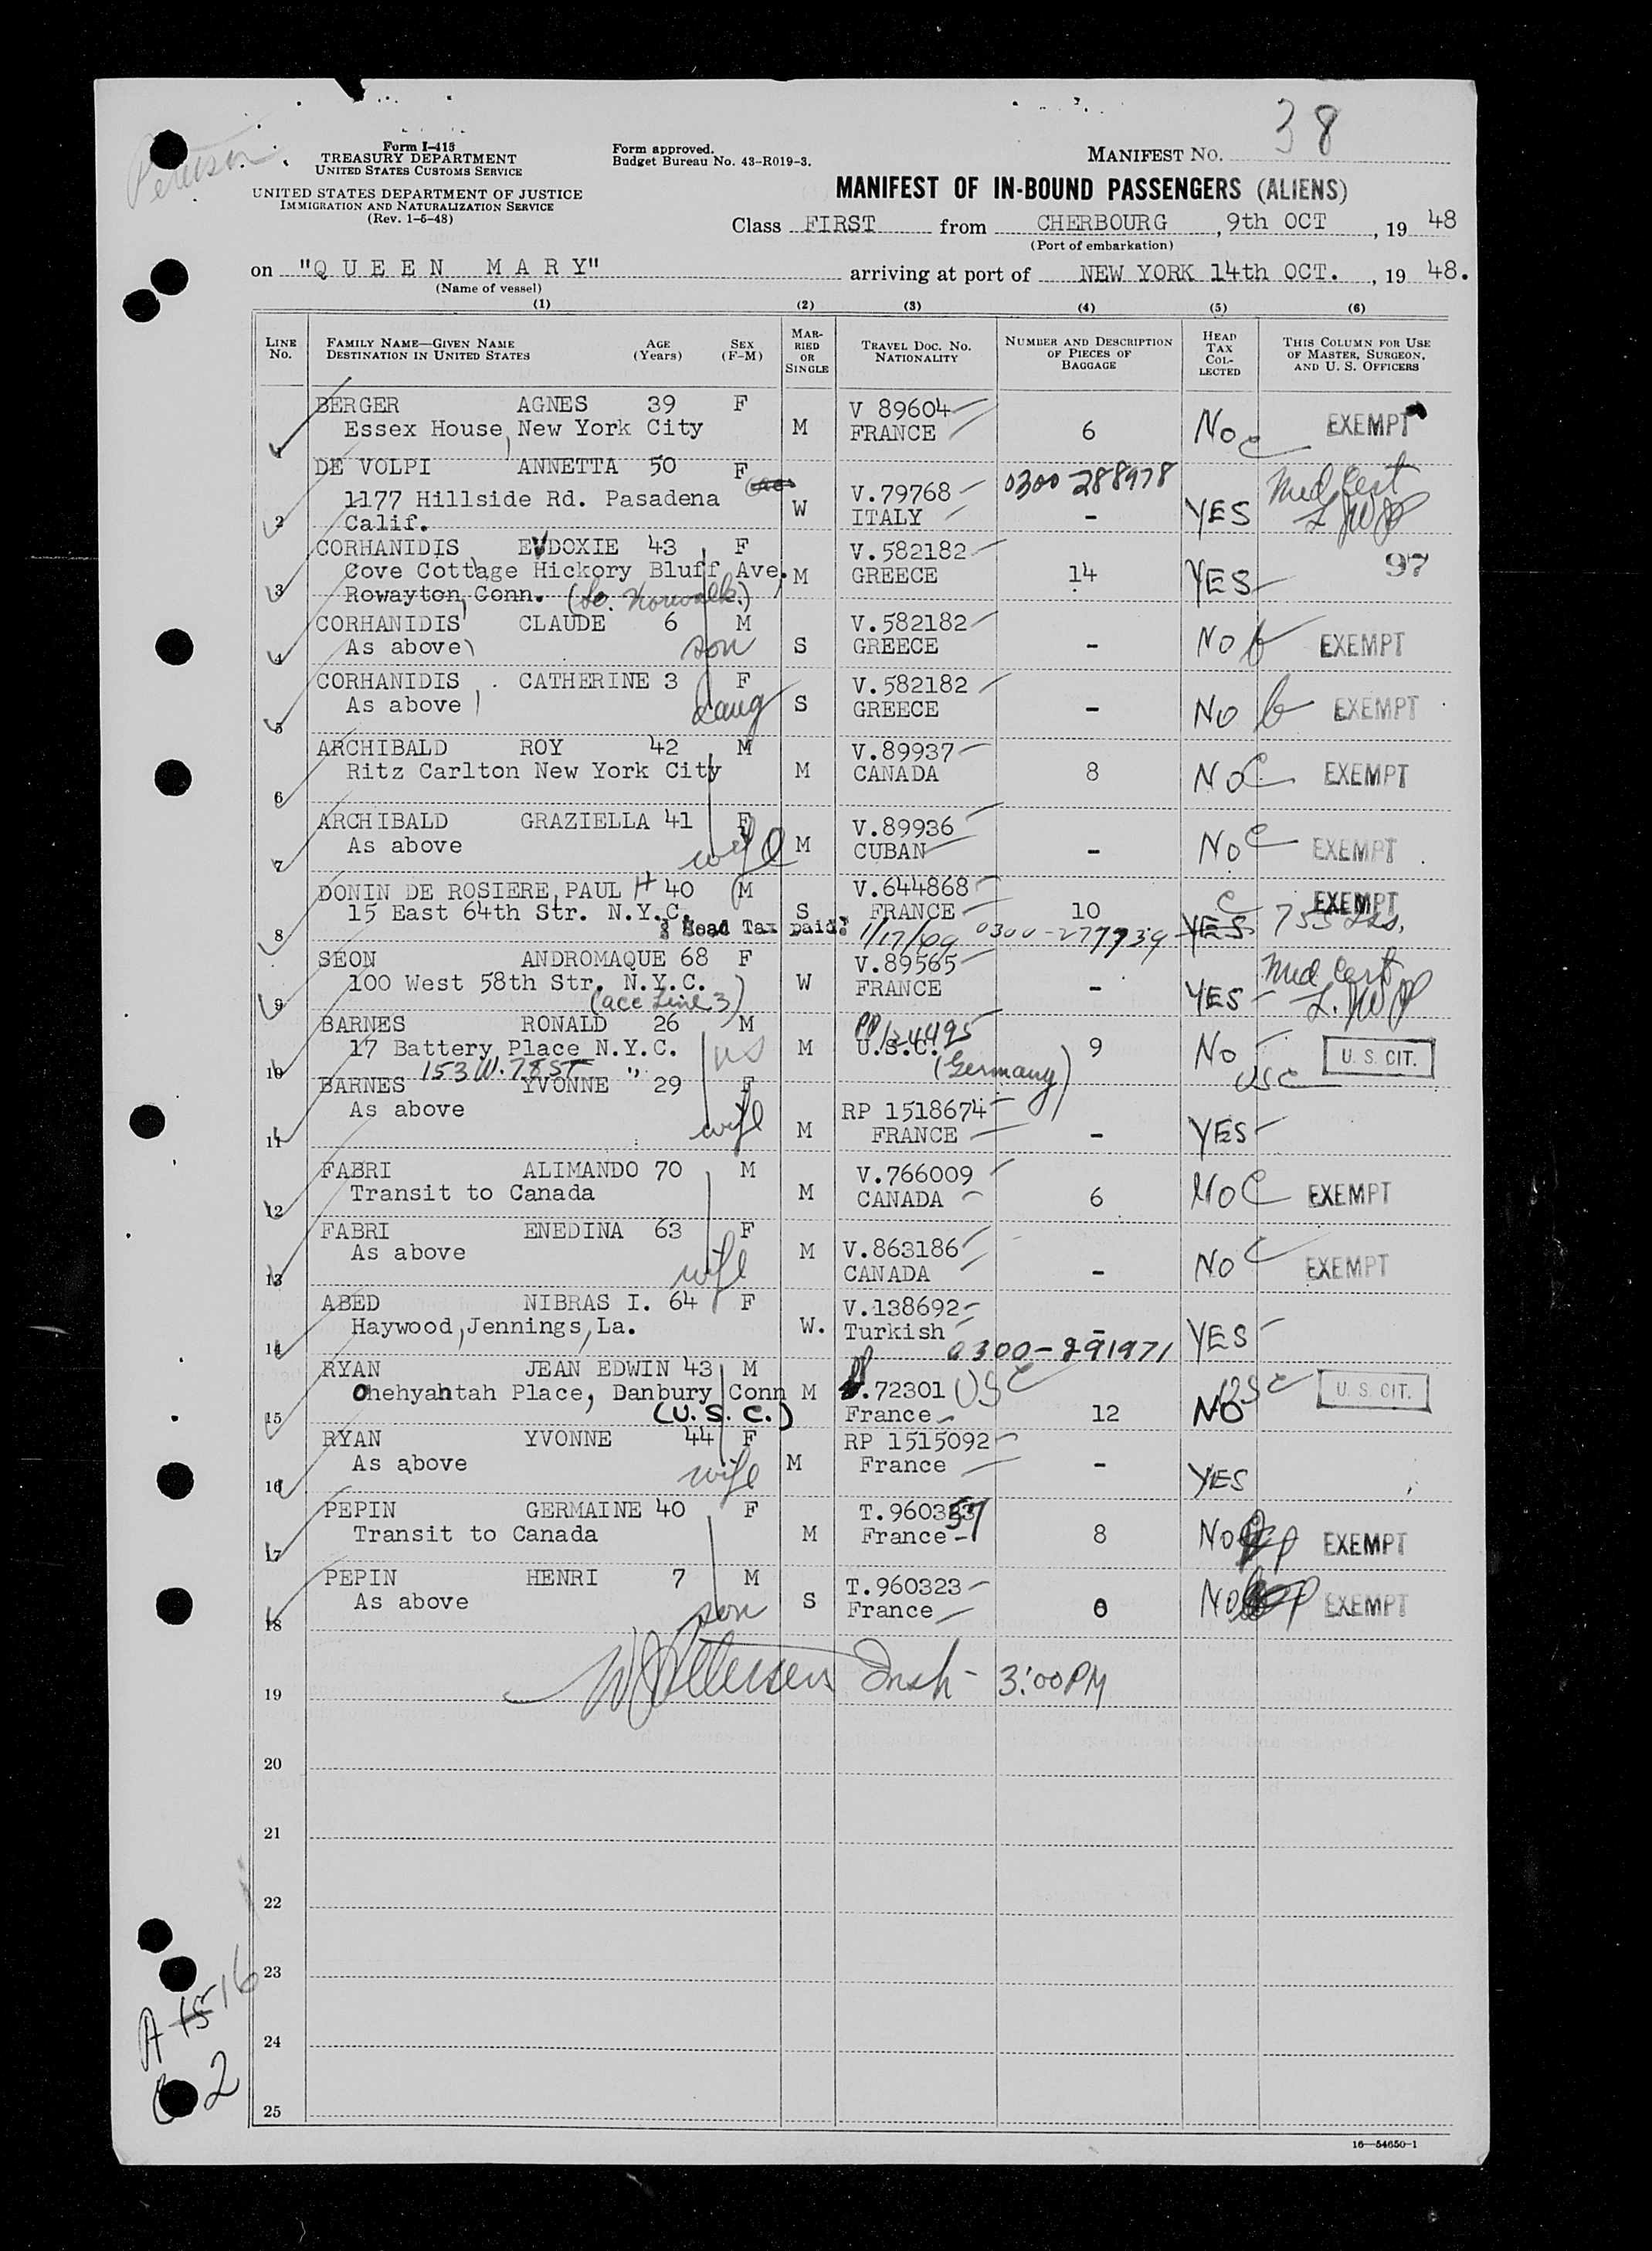 Peterson
38
Form I-415
TREASURY DEPARTMENT
UNITED STATES CUSTOMS SERVICE
UNITED STATES DEPARTMENT OF JUSTICE
IMMIGRATION AND NATURALIZATION SERVICE
(Rev. 1-5-48)
Form approved.
Budget Bureau No. 43-R019-3.
MANIFEST NO.
MANIFEST OF IN-BOUND PASSENGERS (ALIENS)
Class FIRST from CHERBOURG, 9th OCT, 19 48
(Port of embarkation)
on "QUEEN MARY" arriving at port of NEW YORK 14th OCT., 19 48.
(Name of vessel)
(1) (2) (3) (4) (5) (6)
LINE No. FAMILY NAME—GIVEN NAME DESTINATION IN UNITED STATES AGE (Years) SEX (F-M) MARRIED OR SINGLE TRAVEL DOC. NO. NATIONALITY NUMBER AND DESCRIPTION OF PIECES OF BAGGAGE HEAD TAX COLLECTED THIS COLUMN FOR USE OF MASTER, SURGEON, AND U. S. OFFICERS
BERGER AGNES 39 F V 89604
1 Essex House, New York City M FRANCE 6 No c EXEMPT
DE VOLPI ANNETTA 50 F V.79768 0300 288978 Med Cert
1177 Hillside Rd. Pasadena W ITALY - YES
2 Calif.
CORHANIDIS EVDOXIE 43 F V.582182
Cove Cottage Hickory Bluff Ave. M GREECE 14 YES 97
3 Rowayton, Conn. (So. Norwalk.)
CORHANIDIS CLAUDE 6 M V.582182
4 As above son S GREECE - No b EXEMPT
CORHANIDIS CATHERINE 3 F V.582182
5 As above daug S GREECE - No b EXEMPT
ARCHIBALD ROY 42 M V.89937
6 Ritz Carlton New York City M CANADA 8 No C EXEMPT
ARCHIBALD GRAZIELLA 41 F V.89936
7 As above wife M CUBAN - No C EXEMPT
DONIN DE ROSIERE, PAUL H 40 M V.644868 C EXEMPT
15 East 64th Str. N.Y.C. S FRANCE 10 YES
8 Head Tax paid: 0300-277939
SEON ANDROMAQUE 68 F V.89565 Med Cert
9 100 West 58th Str. N.Y.C. W FRANCE - YES
(acc Line 3)
BARNES RONALD 26 M PP
17 Battery Place N.Y.C. US M U.S.C. 9 No U. S. CIT.
10 153 W. 78 ST " (Germany) USC
BARNES YVONNE 29 F RP 1518674
11 As above wife M FRANCE - YES
FABRI ALIMANDO 70 M V.766009
12 Transit to Canada M CANADA 6 No C EXEMPT
FABRI ENEDINA 63 F V.863186
13 As above wife M CANADA - No C EXEMPT
ABED NIBRAS I. 64 F V.138692
14 Haywood, Jennings, La. W. Turkish - YES
0300-291971
RYAN JEAN EDWIN 43 M PP .72301 USC
Ohehyahtah Place, Danbury Conn M France 12 NO USC U. S. CIT.
15 (U. S. C.)
RYAN YVONNE 44 F RP 1515092
16 As above wife M France - YES
PEPIN GERMAINE 40 F T.960323 57
17 Transit to Canada M France 8 No EXEMPT
PEPIN HENRI 7 M T.960323
18 As above son S France 0 No EXEMPT
19 Insp - 3:00 PM
20
21
22
23
24
25
A 15 16
2
16—54650-1